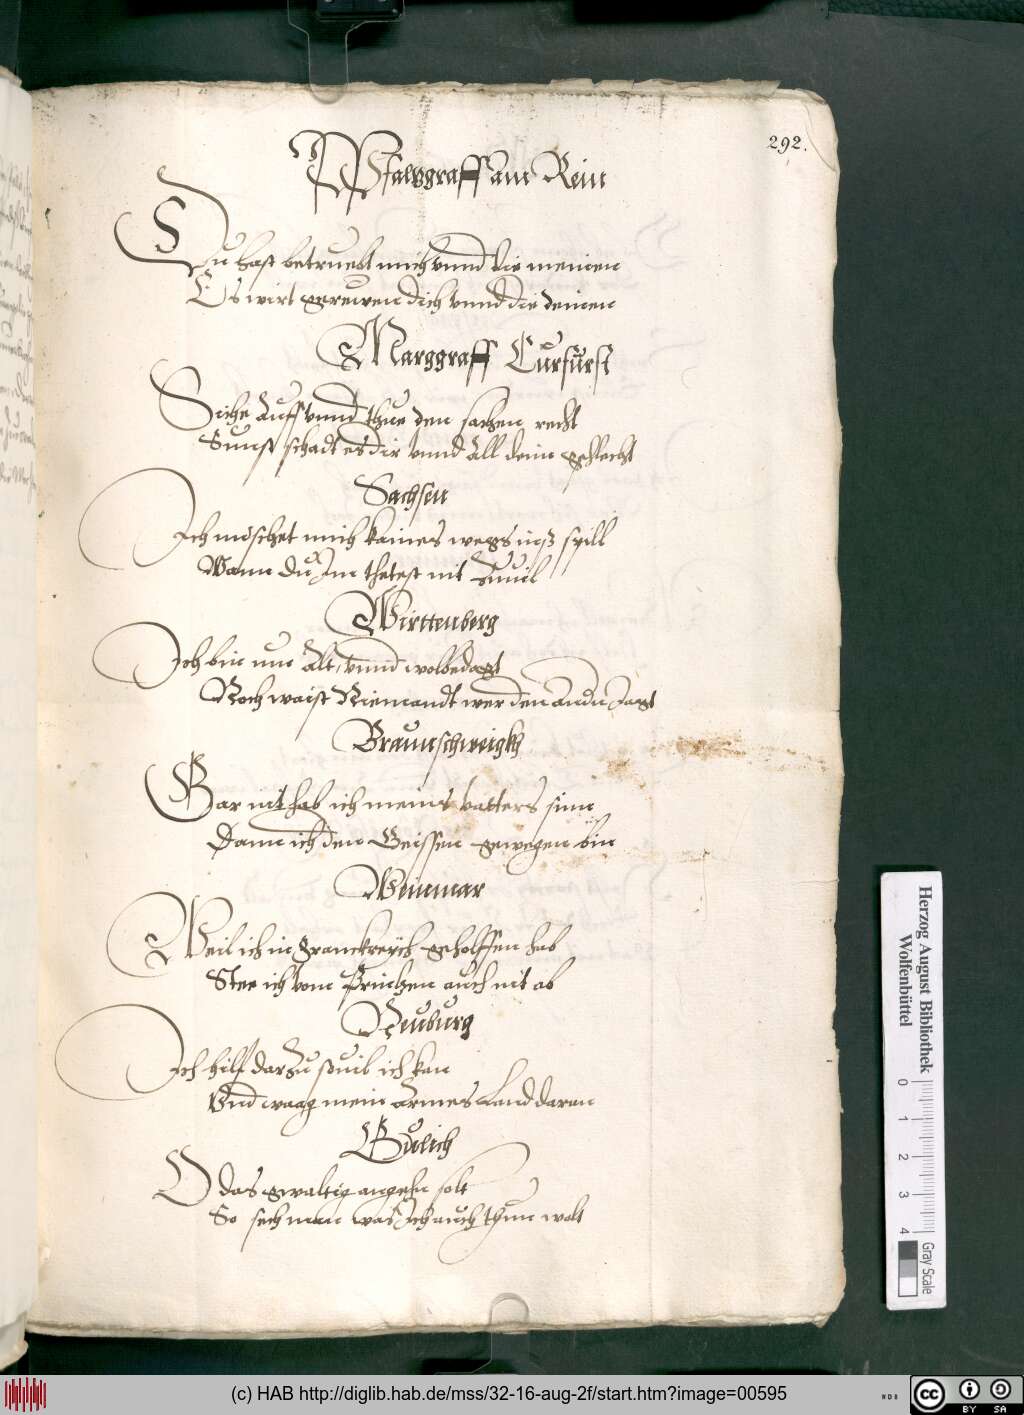 292.
Pfalzgraff am Rein
Du hast betruebt mich vnnd die meinen
Es wirt gereuwen dich vnnd die deinen
Marggraff Curfurst
Siehe Auff vnnd thue den sachen recht
Sunst schadt es dir vnnd all dein geschlecht
Sachsen
Ich möschet mich kaines wegs inß spill
Wann du Im thetest nit Zuuil
Wirttenberg
Ich bin nun Alt, vnnd wolbedagt
Noch waist Niemandt wer den Andn Jagt
Braunschweigkh
Gar nit hab ich meins vatters sinn
Dann ich den Geissen gewegen bin
Weinmar
Weil ich in Franckreych geholffen hab
Stee ich vom Printzen auch nit ab
Neuburg
Ich hilf darzu souil ich kan
Vnd waag mein armes Land daran
Gulich
O das gwaltig angehn solt
So sech man was Ich auch thun wolt
Herzog August Bibliothek
Wolfenbüttel
0 1 2 3 4
Gray Scale
(c) HAB http://diglib.hab.de/mss/32-16-aug-2f/start.htm?image=00595
WDB
cc BY SA